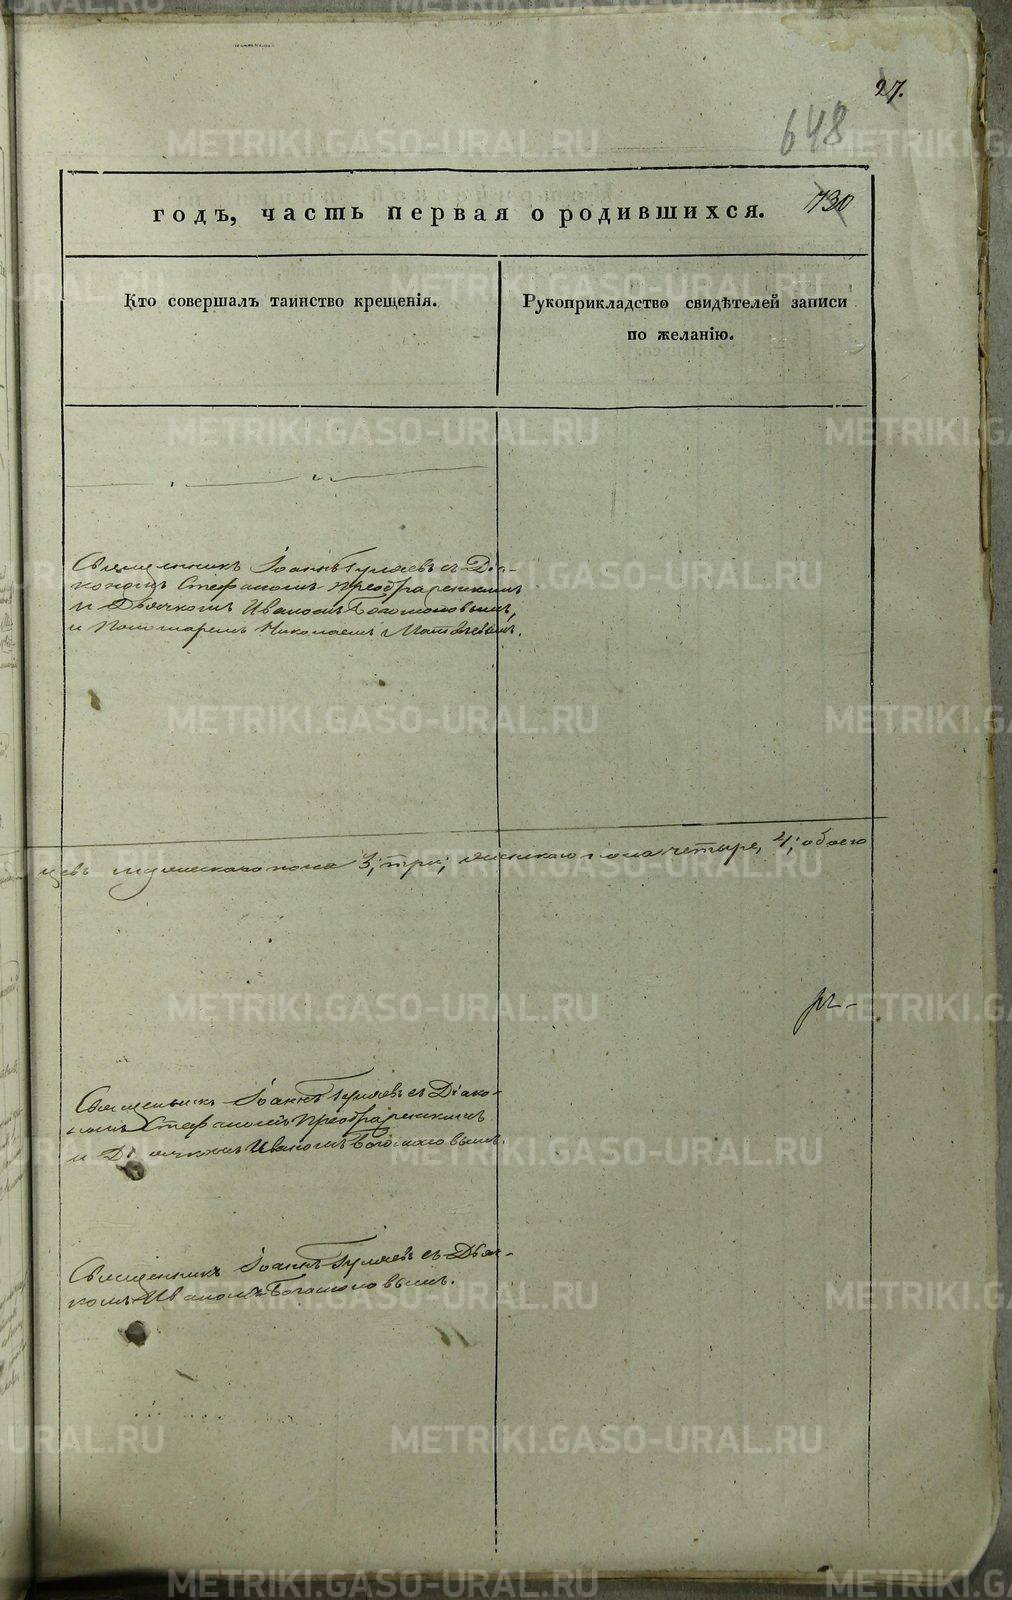 27.
648
730
годъ, часть первая о родившихся.
Кто совершалъ таинство крещенія.
Рукоприкладство свидѣтелей записи
по желанію.
Священникъ Іоаннъ Гуляевъ съ Діа-
кономъ Стефаномъ Преображенскимъ
и Дьячкомъ Иваномъ Богомоловымъ,
и Пономаремъ Николаемъ Матвѣевымъ.
мужескаго пола 3, три; женскаго пола четыре, 4; обоего
Священникъ Іоаннъ Гуляевъ съ Діако-
номъ Стефаномъ Преображенскимъ
и Дьячкомъ Иваномъ Богомоловымъ.
Священникъ Іоаннъ Гуляевъ съ Дьяч-
комъ Иваномъ Богомоловымъ.
METRIKI.GASO-URAL.RU